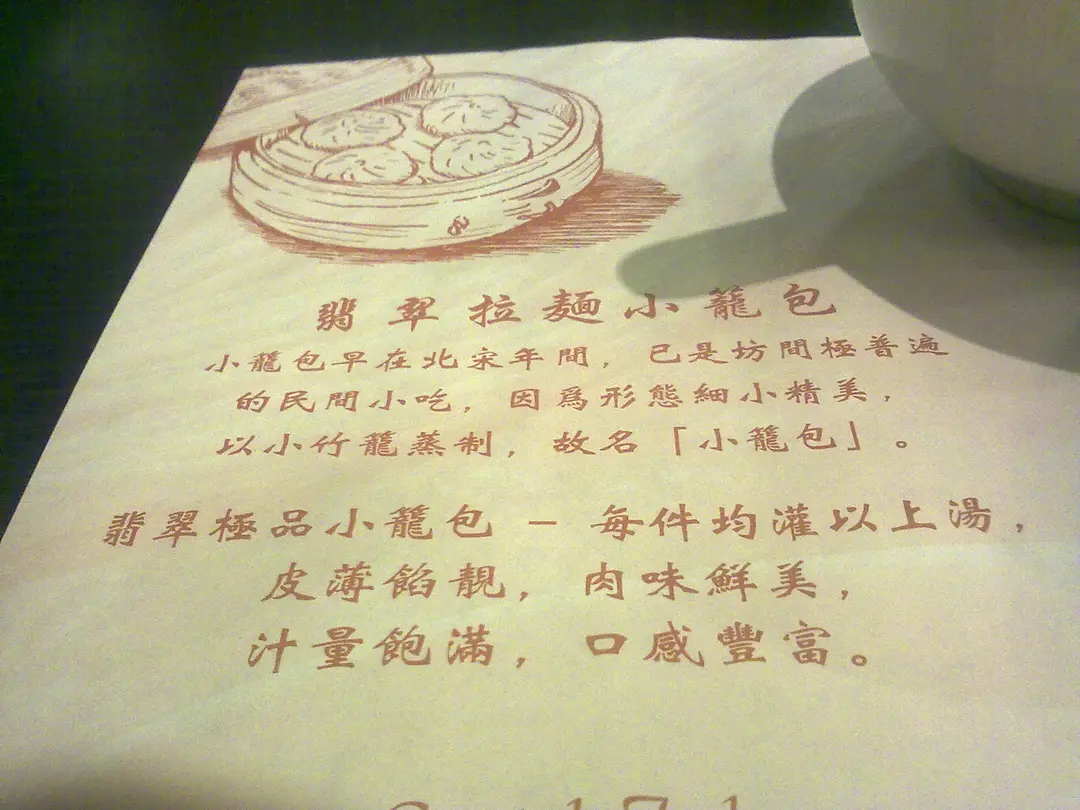 翡翠拉麵小籠包
小籠包早在北宋年間，已是坊間極普遍
的民間小吃，因爲形態細小精美，
以小竹籠蒸制，故名「小籠包」。
翡翠極品小籠包 － 每件均灌以上湯，
皮薄餡靚，肉味鮮美，
汁量飽滿，口感豐富。